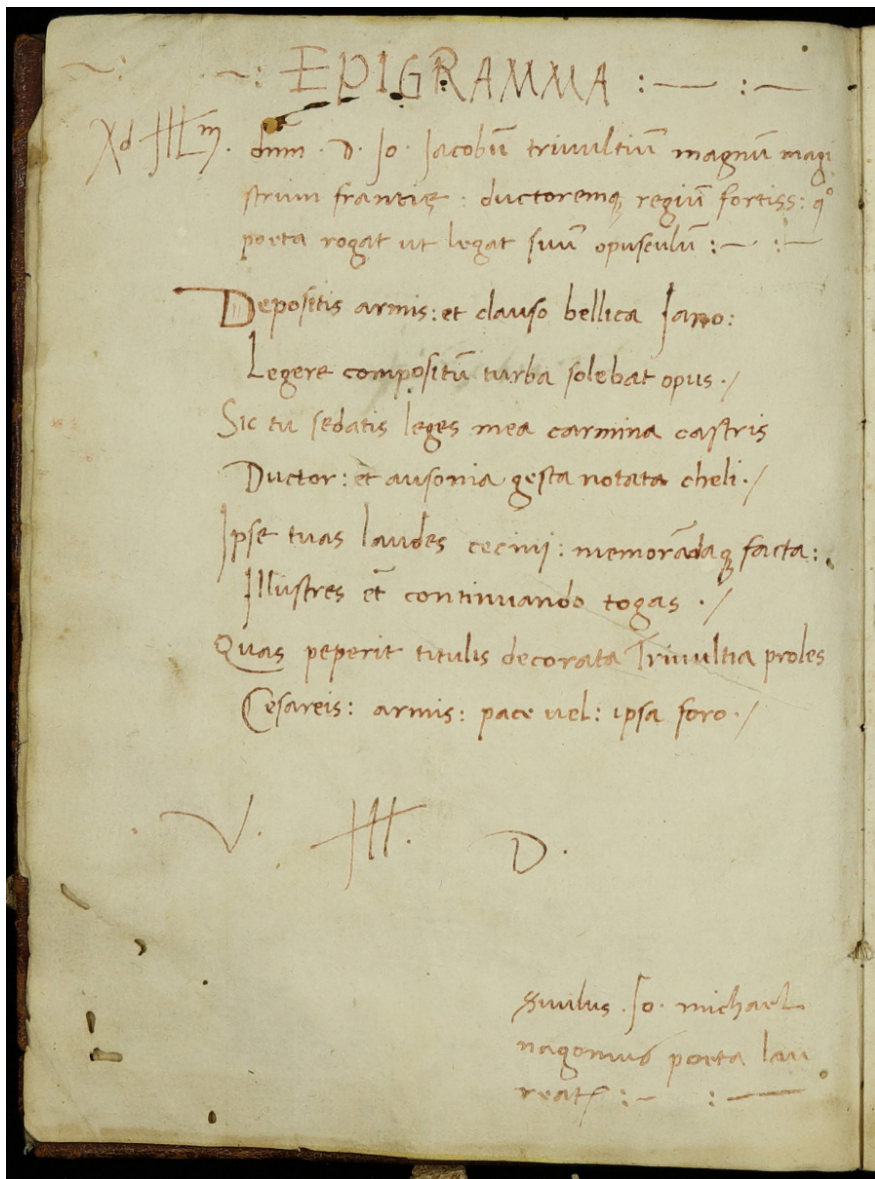 ~: ~: EPIGRAMMA :— :—
Ad Illm. dnm̄. D. Io. Jacobū triuultiū magnū magi
strum francię : ductoremq; regiū fortiss: qº
poeta rogat ut legat suū opusculū :— :—
Depositis armis: et clauso bellica Jano:
Legere compositū turba solebat opus ./
Sic tu sedatis leges mea carmina castris
Ductor: et ausonia gesta notata cheli ./
Ipse tuas laudes cecinij: memorādaq; facta:
Illustres et̄ continuando togas ./
Quas peperit titulis decorata Triuultia proles
Cesareis: armis: pace uel: ipsa foro ./
V. Ill. D.
Suulus . Io. michael
nagonius poeta lau
reatꝰ :— :—